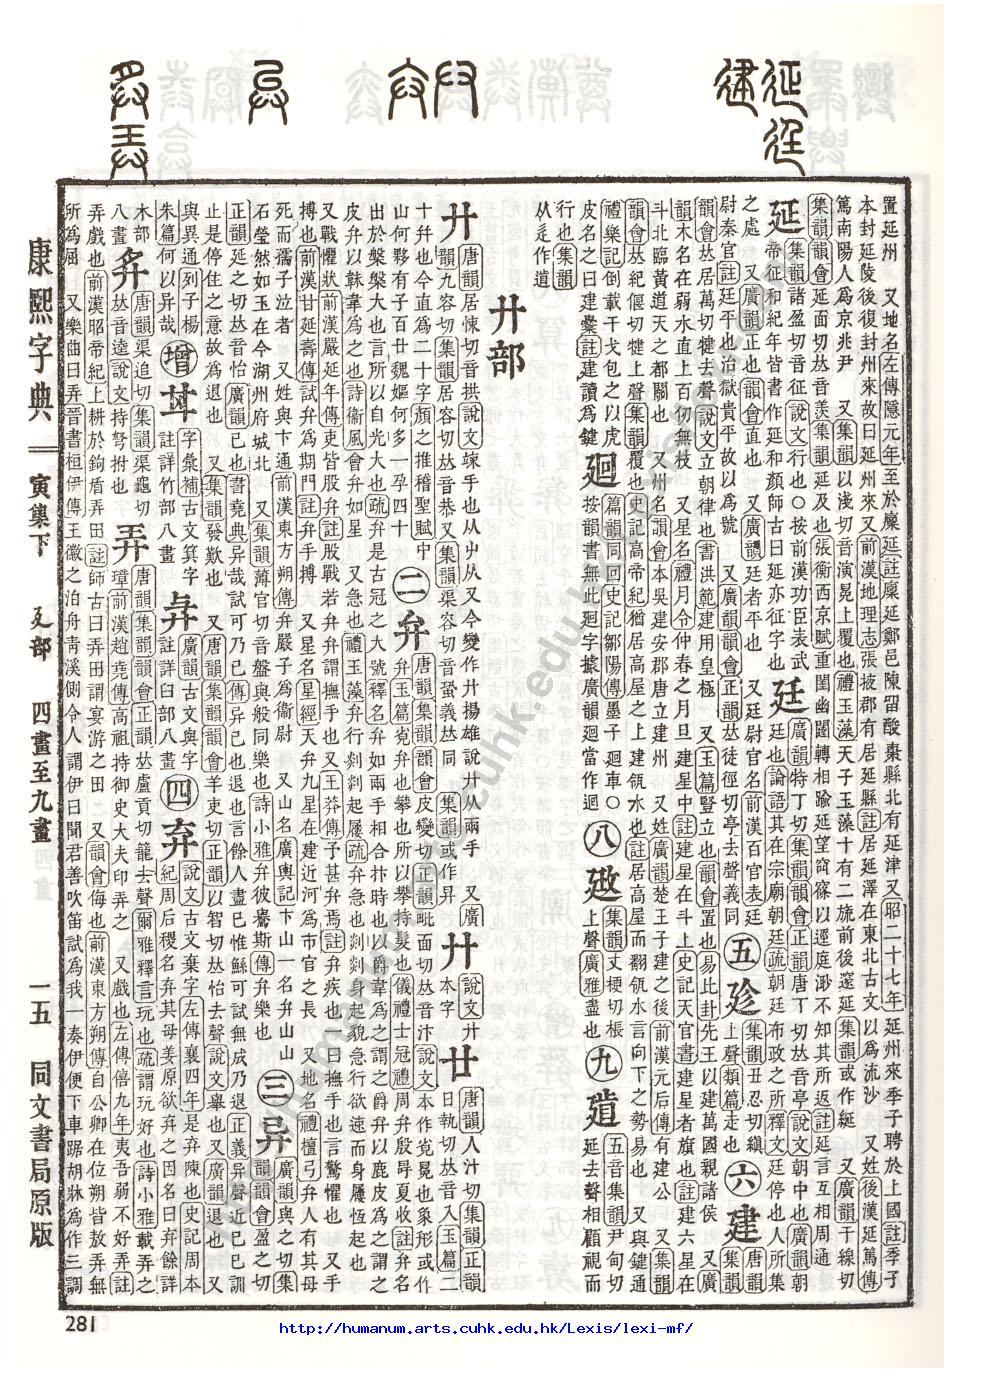 置延州　又地名左傳隱元年至於廩延註廩延鄭邑陳留酸棗縣北有延津又昭二十七年延州來季子聘於上國註季子
本封延陵後復封州來故曰延州來又前漢地理志張掖郡有居延縣註居延澤在東北古文以為流沙　又姓後漢延篤傳
篤南陽人為京兆尹　又集韻以淺切音演冕上覆也禮玉藻天子玉藻十有二旒前後邃延集韻或作綖　又廣韻于線切
集韻韻會延面切𠀤音羨集韻延及也張衡西京賦重閨幽闥轉相踰延望䆗篠以逕庭眇不知其所返註延言互相周通
集韻諸盈切音征說文行也○按前漢功臣表武
之處　又帝征和紀年皆書作延和顏師古曰延亦征字也　廷　廣韻特丁切集韻韻會正韻唐丁切𠀤音亭說文朝中也廣韻朝
又廣韻正也韻會直也　又廣韻廷者平也　又廷尉官名前漢百官表廷　廷也論語其在宗廟朝廷疏朝廷布政之所釋文廷停也人所集
尉秦官註廷平也治獄貴平故以為號　又廣韻韻會正韻𠀤徒徑切亭去聲義同　五　集韻丑忍切上聲類篇走也　六　建　唐韻集韻
韻會𠀤居萬切犍去聲說文立朝律也書洪範建用皇極　又玉篇豎立也韻會置也易比卦先王以建萬國親諸侯　又廣
韻木名在弱水直上百仞無枝　又星名禮月令仲春之月旦建星中註建星在斗上史記天官書建星者旗也註建六星在
斗北臨黃道天之都關也　又州名韻會本吳建安郡唐立建州　又姓廣韻楚王子建之後前漢元后傳有建公　又集韻
韻會𠀤紀偃切犍上聲集韻覆也史記高帝紀猶居高屋之上建瓴水也註居高屋而翻瓴水言向下之勢易也　又與鍵通
禮樂記倒載干戈包之以虎皮名之曰建櫜註建讀為鍵　廻　篇韻同回史記鄒陽傳墨子廻車○按韻書無此廻字據廣韻廻當作迴　八　集韻丈梗切棖上聲廣雅盡也　九　五音集韻尹旬切延去聲相顧視而
行也集韻從辵作道
廾部
廾　唐韻居悚切音拱說文竦手也从𠂇从又今變作廾揚雄說廾从兩手　集韻或作𢌬　又廣韻九容切集韻居容切𠀤音恭又集韻渠容切音蛩義𠀤同　廾　說文廾本字　廿　唐韻人汁切集韻正韻日執切𠀤音入玉篇二
十幷也今直為二十字顏之推稽聖賦中山何夥有子百廿魏嫗何多一孕四十　二　弁　弁玉篇唐韻集韻韻會皮變切正韻毗面切𠀤音汴說文本作覍冕也象形或作
弁釋名弁如兩手相合抃時也以爵韋為之謂之爵弁以鹿皮為之謂之皮弁以韎韋為之也詩衞風會弁如星　又急也禮玉藻弁行剡剡起屨疏弁急也剡剡身起貌急行欲速而身屨恆起也
又戰懼狀前漢嚴延年傳吏皆股弁註股戰若弁弁謂撫手也又王莽傳予甚弁焉註弁疾也一曰弁撫手也言驚懼也　又手
搏也前漢甘延壽傳試弁為期門註弁手搏　又星名星經天弁九星在建近河為市官之長　又地名禮檀弓弁人有其母
死而孺子泣者　又姓與卞通前漢東方朔傳弁嚴子為衞尉　又山名廣輿記卞山一名弁山山石瑩然如玉在今湖州府城北　又集韻薄官切音盤與般同樂也詩小雅弁彼鸒斯傳弁樂也　三　异　廣韻與之切集韻韻會盈之切
正韻延之切𠀤音怡廣韻已也書堯典异哉試可乃已傳异已也退也言餘人盡已惟鯀可試無成乃退正義异聲近已已訓
止是停住之意故為退也　又集韻發歎也　又唐韻集韻韻會羊吏切正韻以智切𠀤怡去聲說文舉也又廣韻退也
與異通列子楊朱篇何以异哉　增　字彙補古文箕字註詳竹部八畫　廣韻古文與字註詳臼部八畫　四　弃　說文古文棄字左傳襄四年是弃陳也史記周本紀周后稷名弃其母姜原欲弃之因名曰弃餘詳
木部八畫　唐韻渠追切集韻渠龜切𠀤音逵說文持弩拊也　弄　唐韻集韻韻會正韻𠀤盧貢切籠去聲爾雅釋言玩也疏謂玩好也詩小雅載弄之璋前漢趙堯傳高祖持御史大夫印弄之　又戲也左傳僖九年夷吾弱不好弄註
弄戲也前漢昭帝紀上耕於鉤盾弄田註師古曰弄田謂宴游之田　又韻會侮也前漢東方朔傳自公卿在位朔皆敖弄無
所為屈　又樂曲曰弄晉書桓伊傳王徽之泊舟青溪側令人謂伊曰聞君善吹笛試為我一奏伊便下車踞胡牀為作三調
康熙字典　寅集下　廴部　四畫至九畫　一五　同文書局原版
281
http://humanum.arts.cuhk.edu.hk/Lexis/lexi-mf/